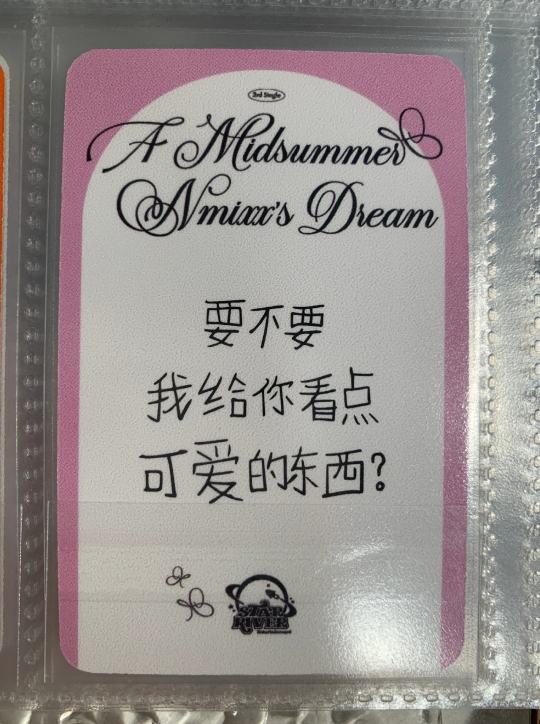 3rd Single
A Midsummer
Nmixx's Dream
要不要
我给你看点
可爱的东西?
STAR
RIVER
Entertainment